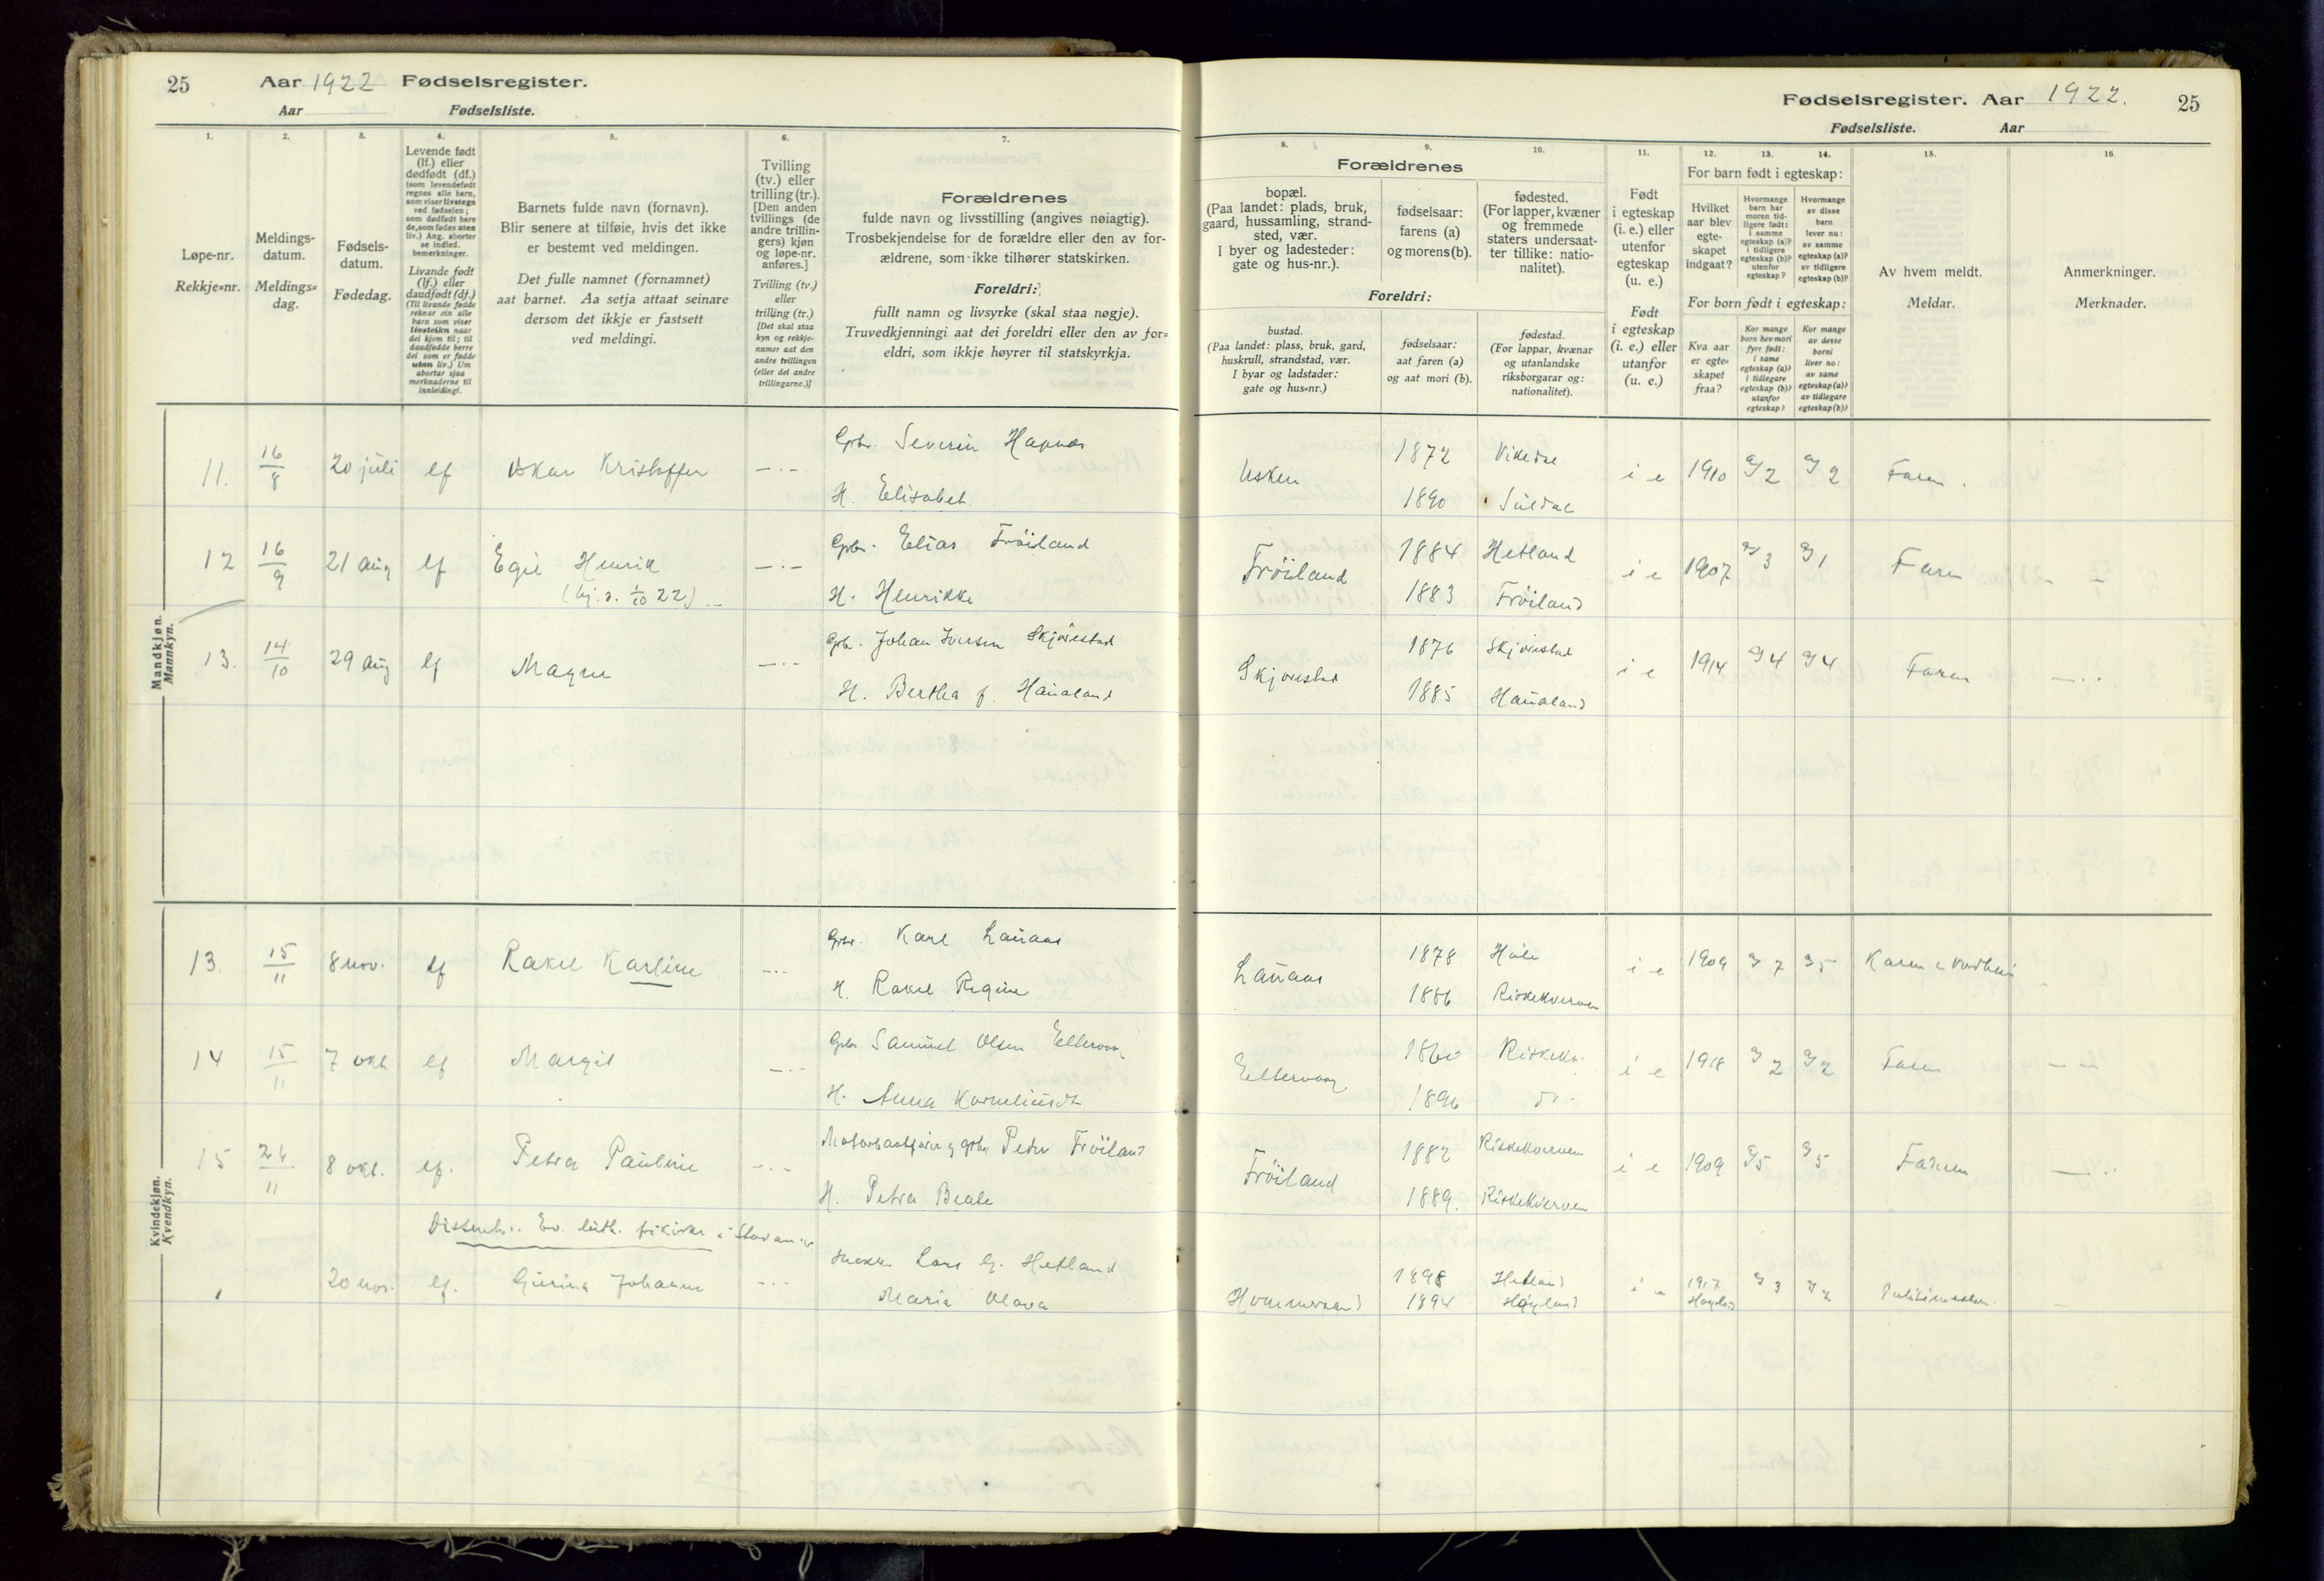 25 Aar 1922 Fødselsregister.
Aar Fødselsliste.
1. 2. 3. 4. 5. 6. 7.
Løpe-nr.
Rekkje=nr.
Meldings-
datum.
Meldings=
dag.
Fødsels-
datum.
Fødedag.
Levende født
(lf.) eller
dødfødt (df.)
(som levendefødt
regnes alle barn,
som viser livstegn
ved fødselen;
som dødfødt bare
de, som fødes uten
liv.) Ang. aborter
se indled.
bemerkninger.
Livande født
(lf.) eller
daudfødt (df.)
(Til livande fødde
reknar ein alle
barn som viser
livsteikn naar
dei kjem til; til
daudfødde berre
dei som er fødde
utan liv.) Um
abortar sjaa
merknaderne til
innleidingi.
Barnets fulde navn (fornavn).
Blir senere at tilføie, hvis det ikke
er bestemt ved meldingen.
Det fulle namnet (fornamnet)
aat barnet. Aa setja attaat seinare
dersom det ikkje er fastsett
ved meldingi.
Tvilling
(tv.) eller
trilling (tr.).
[Den anden
tvillings (de
andre trillin-
gers) kjøn
og løpe-nr.
anføres.]
Tvilling (tv.)
eller
trilling (tr.)
[Det skal staa
kyn og rekkje-
numer aat den
andre tvillingen
(eller dei andre
trillingarne.)]
Forældrenes
fulde navn og livsstilling (angives nøiagtig).
Trosbekjendelse for de forældre eller den av for-
ældrene, som ikke tilhører statskirken.
Foreldri:
fullt namn og livsyrke (skal staa nøgje).
Truvedkjenningi aat dei foreldri eller den av for=
eldri, som ikkje høyrer til statskyrkja.
Mandkjøn.
Mannkyn.
11. 16/8 20 juli lf Oskar Kristoffer —·— Gbr. Severin Hapnes
H. Elisabet
12 16/9 21 aug lf Egil Henrik —·— Gbr. Elias Fröiland
(hj. d. 1/10 22) H. Henrikke
13. 14/10 29 aug lf Magne —·— Gbr. Johan Iversen Skjörestad
H. Bertha f. Haualand
Kvindekjøn.
Kvendkyn.
13. 15/11 8 nov. lf Rakel Karline —·— Gbr. Karl Lauaas
H. Rakel Regine
14 15/11 7 okt lf Margit —·— Gbr Samuel Olsen Eltervaag
H. Anna
15 24/11 8 okt. lf. Petra Pauline —·— Motorbaatförer g gbr Peder Fröiland
H. Petra Beate
Dissent.. Ev. luth. frikirke i Stavanger
20 nov. lf. Gurina Johanne —·— Lars G. Hetland
Maria Olava
Fødselsregister. Aar 1922. 25
Fødselsliste. Aar
8. 9. 10. 11. 12. 13. 14. 15. 16.
Forældrenes
bopæl.
(Paa landet: plads, bruk,
gaard, hussamling, strand-
sted, vær.
I byer og ladesteder:
gate og hus-nr.).
fødselsaar:
farens (a)
og morens (b).
fødested.
(For lapper, kvæner
og fremmede
staters undersaat-
ter tillike: natio-
nalitet).
Foreldri:
bustad.
(Paa landet: plass, bruk, gard,
huskrull, strandstad, vær.
I byar og ladstader:
gate og hus=nr.)
fødselsaar:
aat faren (a)
og aat mori (b).
fødestad.
(For lappar, kvænar
og utanlandske
riksborgarar og:
nationalitet).
Født
i egteskap
(i. e.) eller
utenfor
egteskap
(u. e.)
Født
i egteskap
(i. e.) eller
utanfor
(u. e.)
For barn født i egteskap:
Hvilket
aar blev
egte-
skapet
indgaat?
Hvormange
barn har
moren tid-
ligere født:
i samme
egteskap (a)?
i tidligere
egteskap (b)?
utenfor
egteskap?
Hvormange
av disse
barn
lever nu:
av samme
egteskap (a)?
av tidligere
egteskap (b)?
For born født i egteskap:
Kva aar
er egte-
skapet
fraa?
Kor mange
born hev mori
fyrr født:
i same
egteskap (a)?
i tidlegare
egteskap (b)?
utanfor
egteskap?
Kor mange
av desse
borni
liver no:
av same
egteskap (a)?
av tidlegare
egteskap (b)?
Av hvem meldt.
Meldar.
Anmerkninger.
Merknader.
Usken 1872 Vikedal i e 1910 a/2 a/2 Faren.
1890 Suldal
Fröiland 1884 Hetland i e 1907 a/3 a/1 Faren — —
1883 Fröiland
Skjörestad 1876 Skjörestad i e 1914 a/4 a/4 Faren —··
1885 Haualand
Lauaas 1878 Hole i e 1909 a/7 a/5
1886 Riskekverven
Eltervaag 1860 Riskekv. i e 1918 a/2 a/2 Faren — —
1896 do.
Fröiland 1882 Riskekverven i e 1909 a/5 a/5 Faren —··
1889. Riskekverven
1898 Hetland i e 1917 a/3 a/2
1894 Høyland Høyland